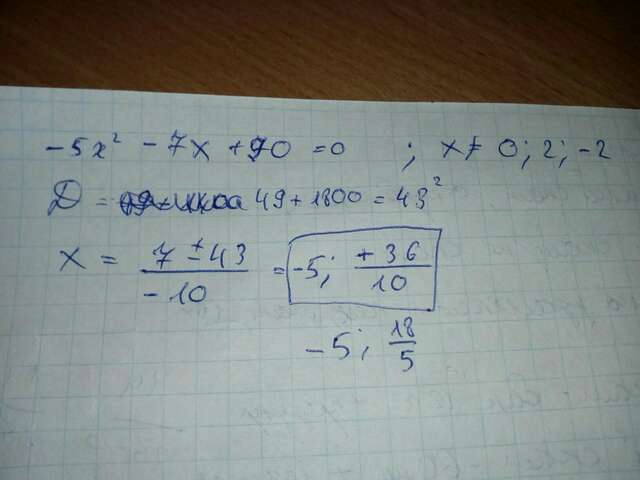 -5x² - 7x + 90 = 0 ; x ≠ 0; 2; -2
D = 49 + 1800 = 43²
x = (7 ± 43)/(-10) = -5; (+36)/10
-5; 18/5